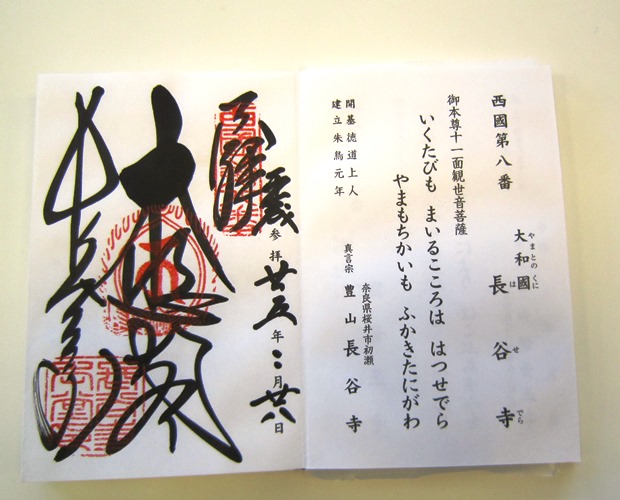 西國第八番
大和國 長谷寺
やまとのくに は せ でら
御本尊十一面観世音菩薩
いくたびも まいるこころは はつせでら
やまもちかいも ふかきたにがわ
開基徳道上人
建立朱鳥元年
奈良県桜井市初瀬
真言宗 豊山長谷寺
奉拝
平成
参拝廿五年二月廿八日
大悲閣
長谷寺